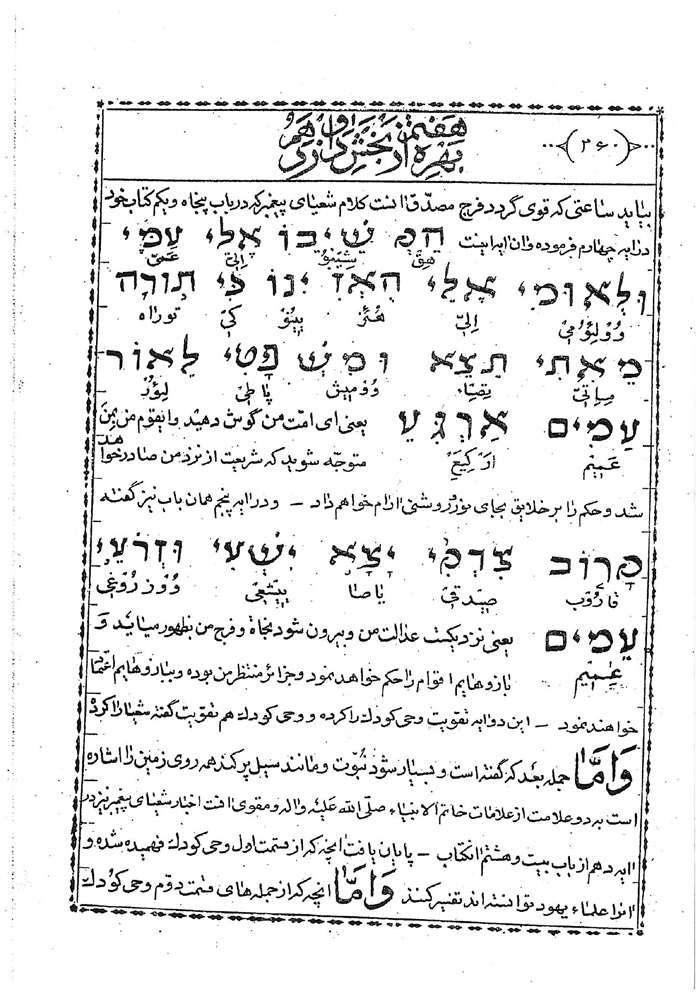 هفتمین بهره از بخش داوزدهم
(۲۶۰)
بیاید ساعتی که قوی گردد فرج مصدّق اینست کلام شعیای پیغمبر که در باب پنجاه و یکم کتاب خود
در آیه چهارم فرموده و آن آیه اینست הק שיבו אלי עמי
هق یشینو الی عمی
ולאומי אלי האז ינו כי תורה
وولئومی الی هئز ینو کی توراه
מאתי תצא ומש פטי לאור
مِاتی تصاء وومیش پاطی لئور
עמים ארגע یعنی ای امت من گوش دهید و ایقوم من بمن
عمیم ارکیع متوجّه شوید که شریعت از نزد من صادر خواهد
شد و حکم را بر خلایق بجای نور و روشنی آرام خواهم داد – و در آیه پنجم همان باب نیز گفته
קרוב צדקי יצא ישעי וזרעי
قاروب صیدقی یاصا ییشعی ووزروعی
עמים یعنی نزدیکست عدالت من و بیرون شود نجاة و فرج من بظهور میاید و
عمیم بازوهایم اقوام را حکم خواهد نمود و جزائر منتظر من بوده و ببازوهایم اعتماد
خواهند نمود – این دو آیه تقویت وحی کودک را کرده و وحی کودک هم تقویت گفته شعیا را کرد
وَامّا جمله بعد که گفته است و بسیار شود نبوّت و مانند سیل پر کند همه روی زمین را اشاره
است به دو علامت از علامات خاتم الانبیاء صلّی الله علیه و اله و مقوی افت اخبار شعیای پیغمبر نیز در
ایه دهم از باب بیست و هشتم انکتاب – پایان یافت آنچه که از قسمت اول وحی کودک فهمیده شده و
انرا علماء یهود توانسته اند تفسیر کنند وَامّا آنچه که از جمله های قسمت دوّم وحی کودک